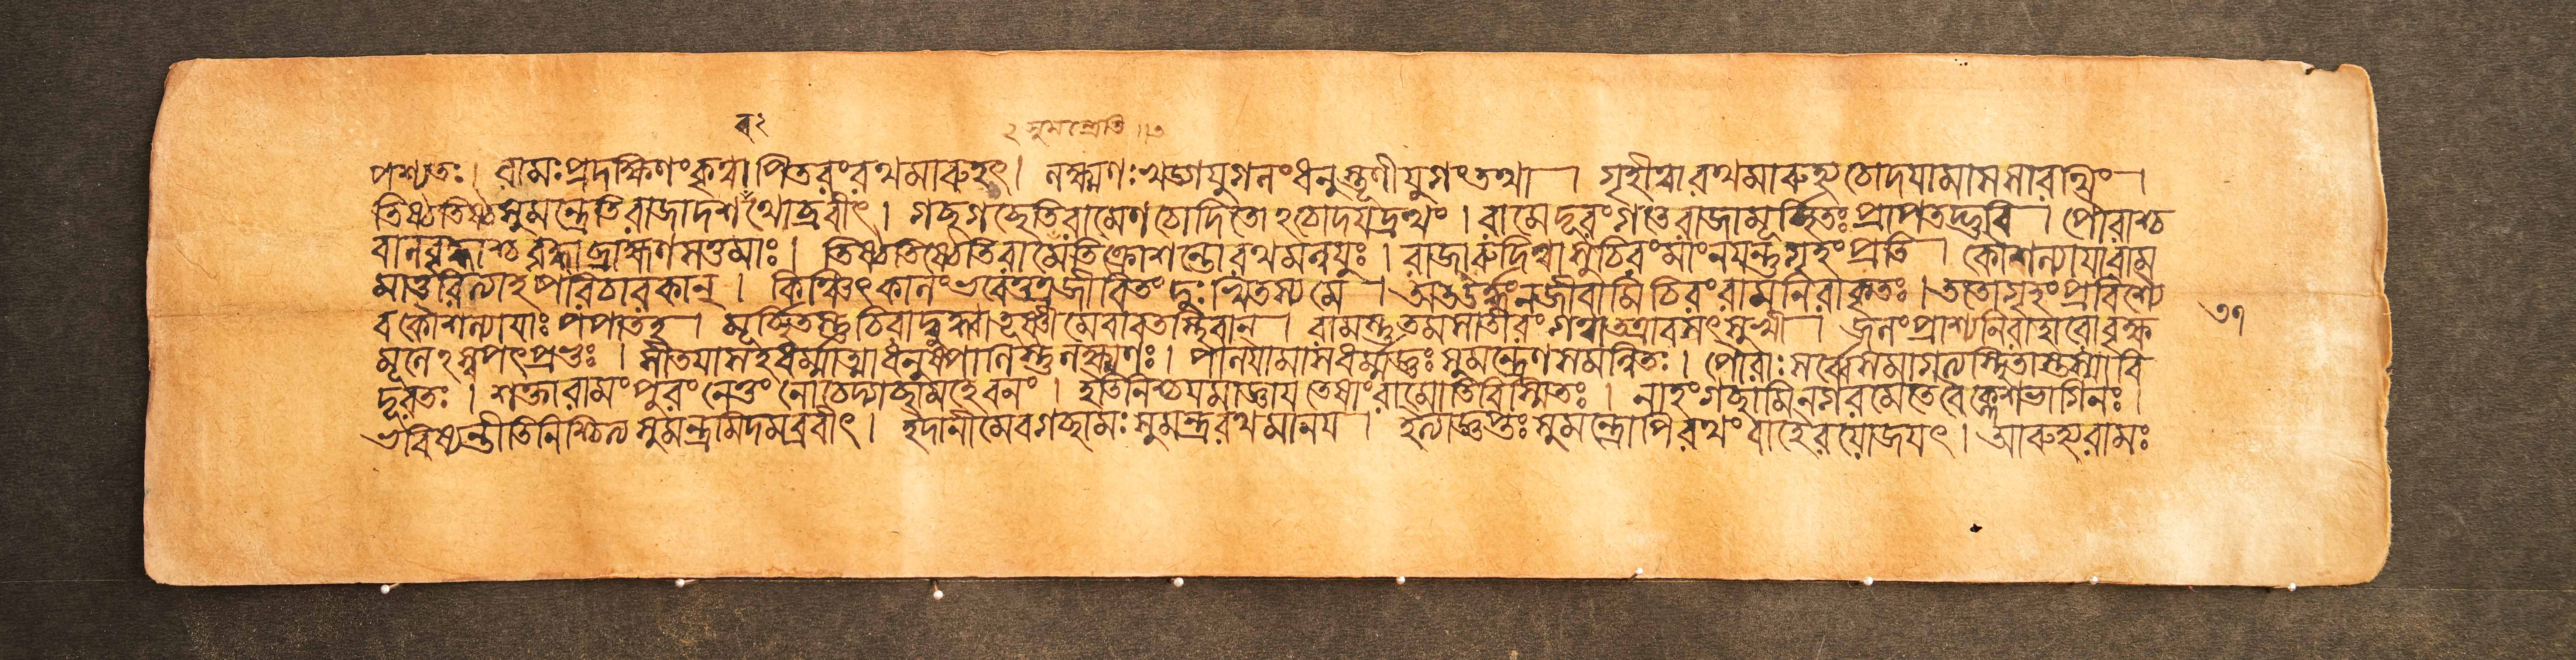 ব২
২ সুমন্ত্রেতি ॥৩
পশ্যতঃ। রামঃপ্রদক্ষিণংকৃত্বাপিতরংরথমারুহৎ। লক্ষ্মণঃখড্গযুগলংধনুস্তূণীযুগংতথা। গৃহীত্বারথমারুহ্যচোদয়ামাসসারথিং।
তিষ্ঠতিষ্ঠসুমন্ত্রেতিরাজাদশরথোব্রবীৎ। গচ্ছগচ্ছেতিরামেণচোদিতোঽচোদয়দ্রথং। রামেদূরংগতেরাজামূর্চ্ছিতঃপ্রাপতদ্ভুবি। পৌরাশ্চ
বালবৃদ্ধাশ্চবৃদ্ধাব্রাহ্মণসত্তমাঃ। তিষ্ঠতিষ্ঠেতিরামেতিক্রোশন্তোরথমন্বয়ুঃ। রাজারুদিত্বাসুচিরংমাংনয়ন্তুগৃহংপ্রতি। কৌশল্যায়ারাম
মাতুরিত্যাহপরিচারকান্। কিঞ্চিৎকালংভবেত্তত্রজীবিতংদুঃখিতস্যমে। অতঊর্দ্ধ্বংনজীবামিচিরংরামনিরাকৃতঃ। ততোগৃহংপ্রবিশ্যৈ
বকৌশল্যায়াঃপপাতহ। মূর্চ্ছিতস্তুচিরাদ্বুদ্ধ্বাতূষ্ণীমেবাবতস্থিবান্। রামস্তুতমসাতীরংগত্বাতত্রাবসৎসুখী। জলংপ্রাশ্যনিরাহারোবৃক্ষ
মূলেঽস্বপৎপ্রভুঃ। সীতয়াসহধর্ম্মাত্মাধনুষ্পাণিস্তুলক্ষ্মণঃ। পালয়ামাসধর্ম্মজ্ঞঃসুমন্ত্রেণসমন্বিতঃ। পৌরাঃসর্ব্বেসমাগত্যস্থিতাস্তস্যাবি
দূরতঃ। শক্তারামংপুরংনেতুংনোচেদ্গচ্ছামহেবনং। ইতিনিশ্চয়মাজ্ঞায়তেষাংরামোতিবিস্মিতঃ। নাহংগচ্ছামিনগরমেতেবৈক্লেশভাগিনঃ।
ভবিষ্যন্তীতিনিশ্চিত্যসুমন্ত্রমিদমব্রবীৎ। ইদানীমেবগচ্ছামঃসুমন্ত্ররথমানয়। ইত্যাজ্ঞপ্তঃসুমন্ত্রোপিরথংবাহৈরয়োজয়ৎ। আরুহ্যরামঃ
৩৭